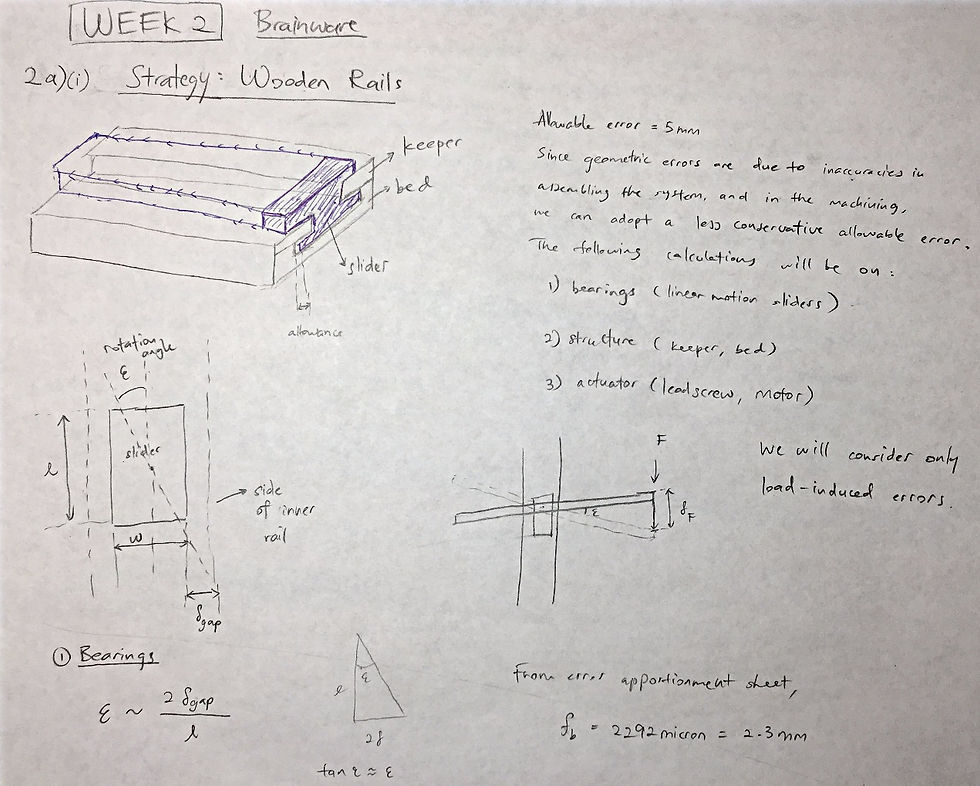 WEEK 2 Brainware
2a)(i) Strategy: Wooden Rails
keeper
bed
slider
allowance
Allowable error = 5mm
Since geometric errors are due to inaccuracies in
assembling the system, and in the machining,
we can adopt a less conservative allowable error.
The following calculations will be on:
1) bearings (linear motion sliders).
2) structure (keeper, bed)
3) actuator (leadscrew, motor)
rotation
angle
ε
slider
l
w
side
of inner
rail
δgap
F
ε
δF
We will consider only
load-induced errors.
① Bearings
ε ~ 2 δgap / l
l
ε
2δ
tan ε ≈ ε
From error apportionment sheet,
δb = 2292 micron = 2.3 mm